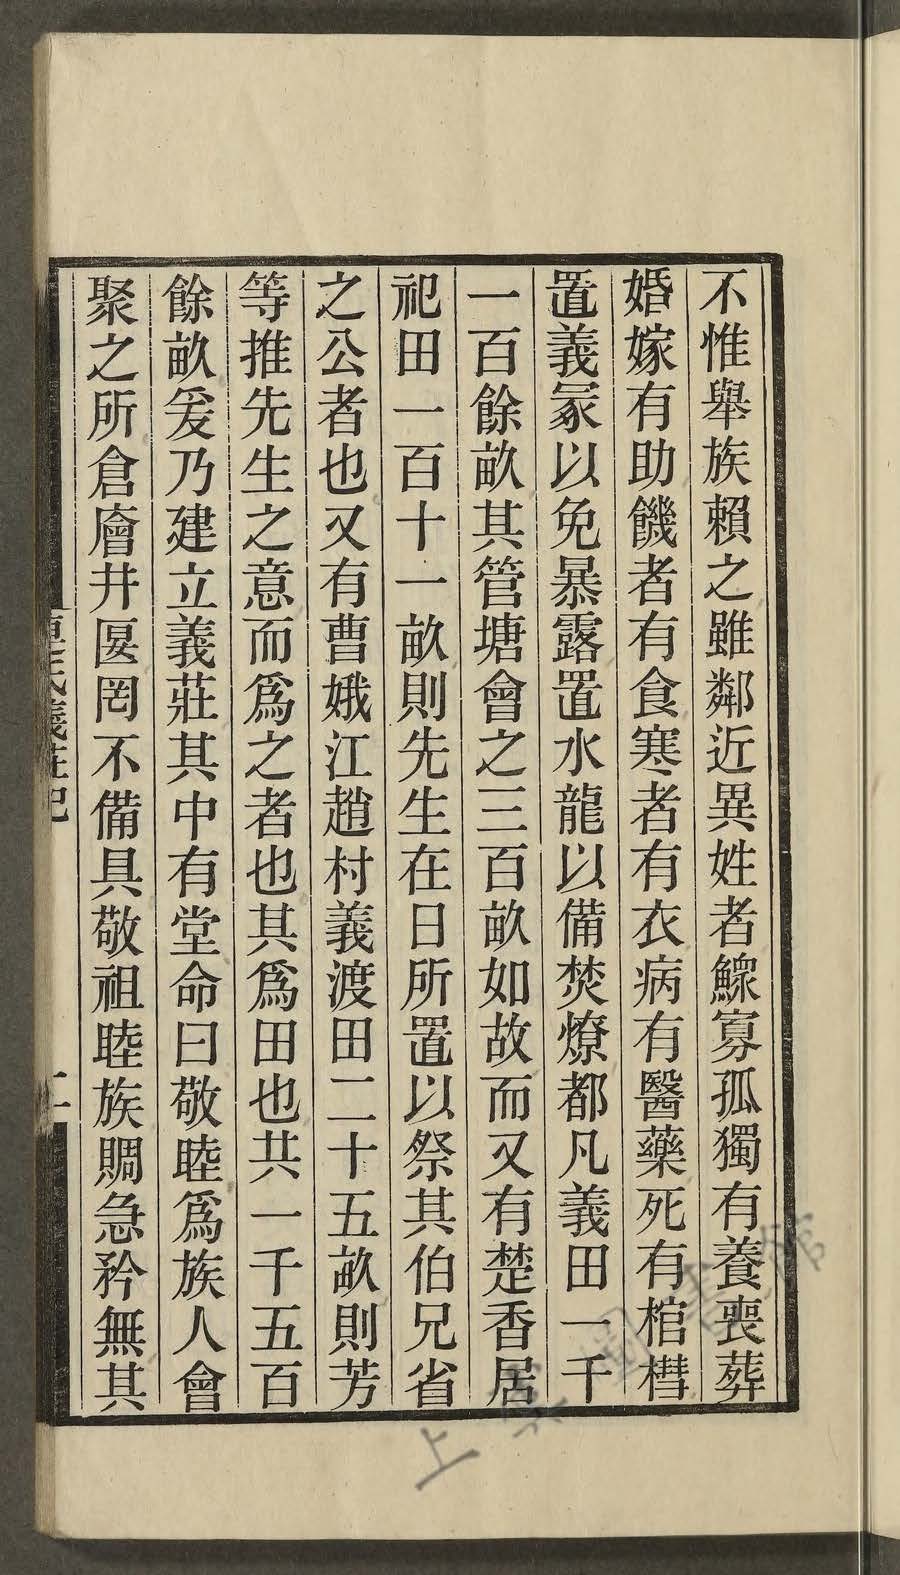 不惟舉族賴之雖鄰近異姓者鰥寡孤獨有養喪葬
婚嫁有助饑者有食寒者有衣病有醫藥死有棺槥
置義冢以免暴露置水龍以備焚燎都凡義田一千
一百餘畝其管塘會之三百畝如故而又有楚香居
祀田一百十一畝則先生在日所置以祭其伯兄省
之公者也又有曹娥江趙村義渡田二十五畝則芳
等推先生之意而爲之者也其爲田也共一千五百
餘畝爰乃建立義莊其中有堂命曰敬睦爲族人會
聚之所倉廥井匽罔不備具敬祖睦族賙急矜無其
氏義莊記
二
上 圖書館